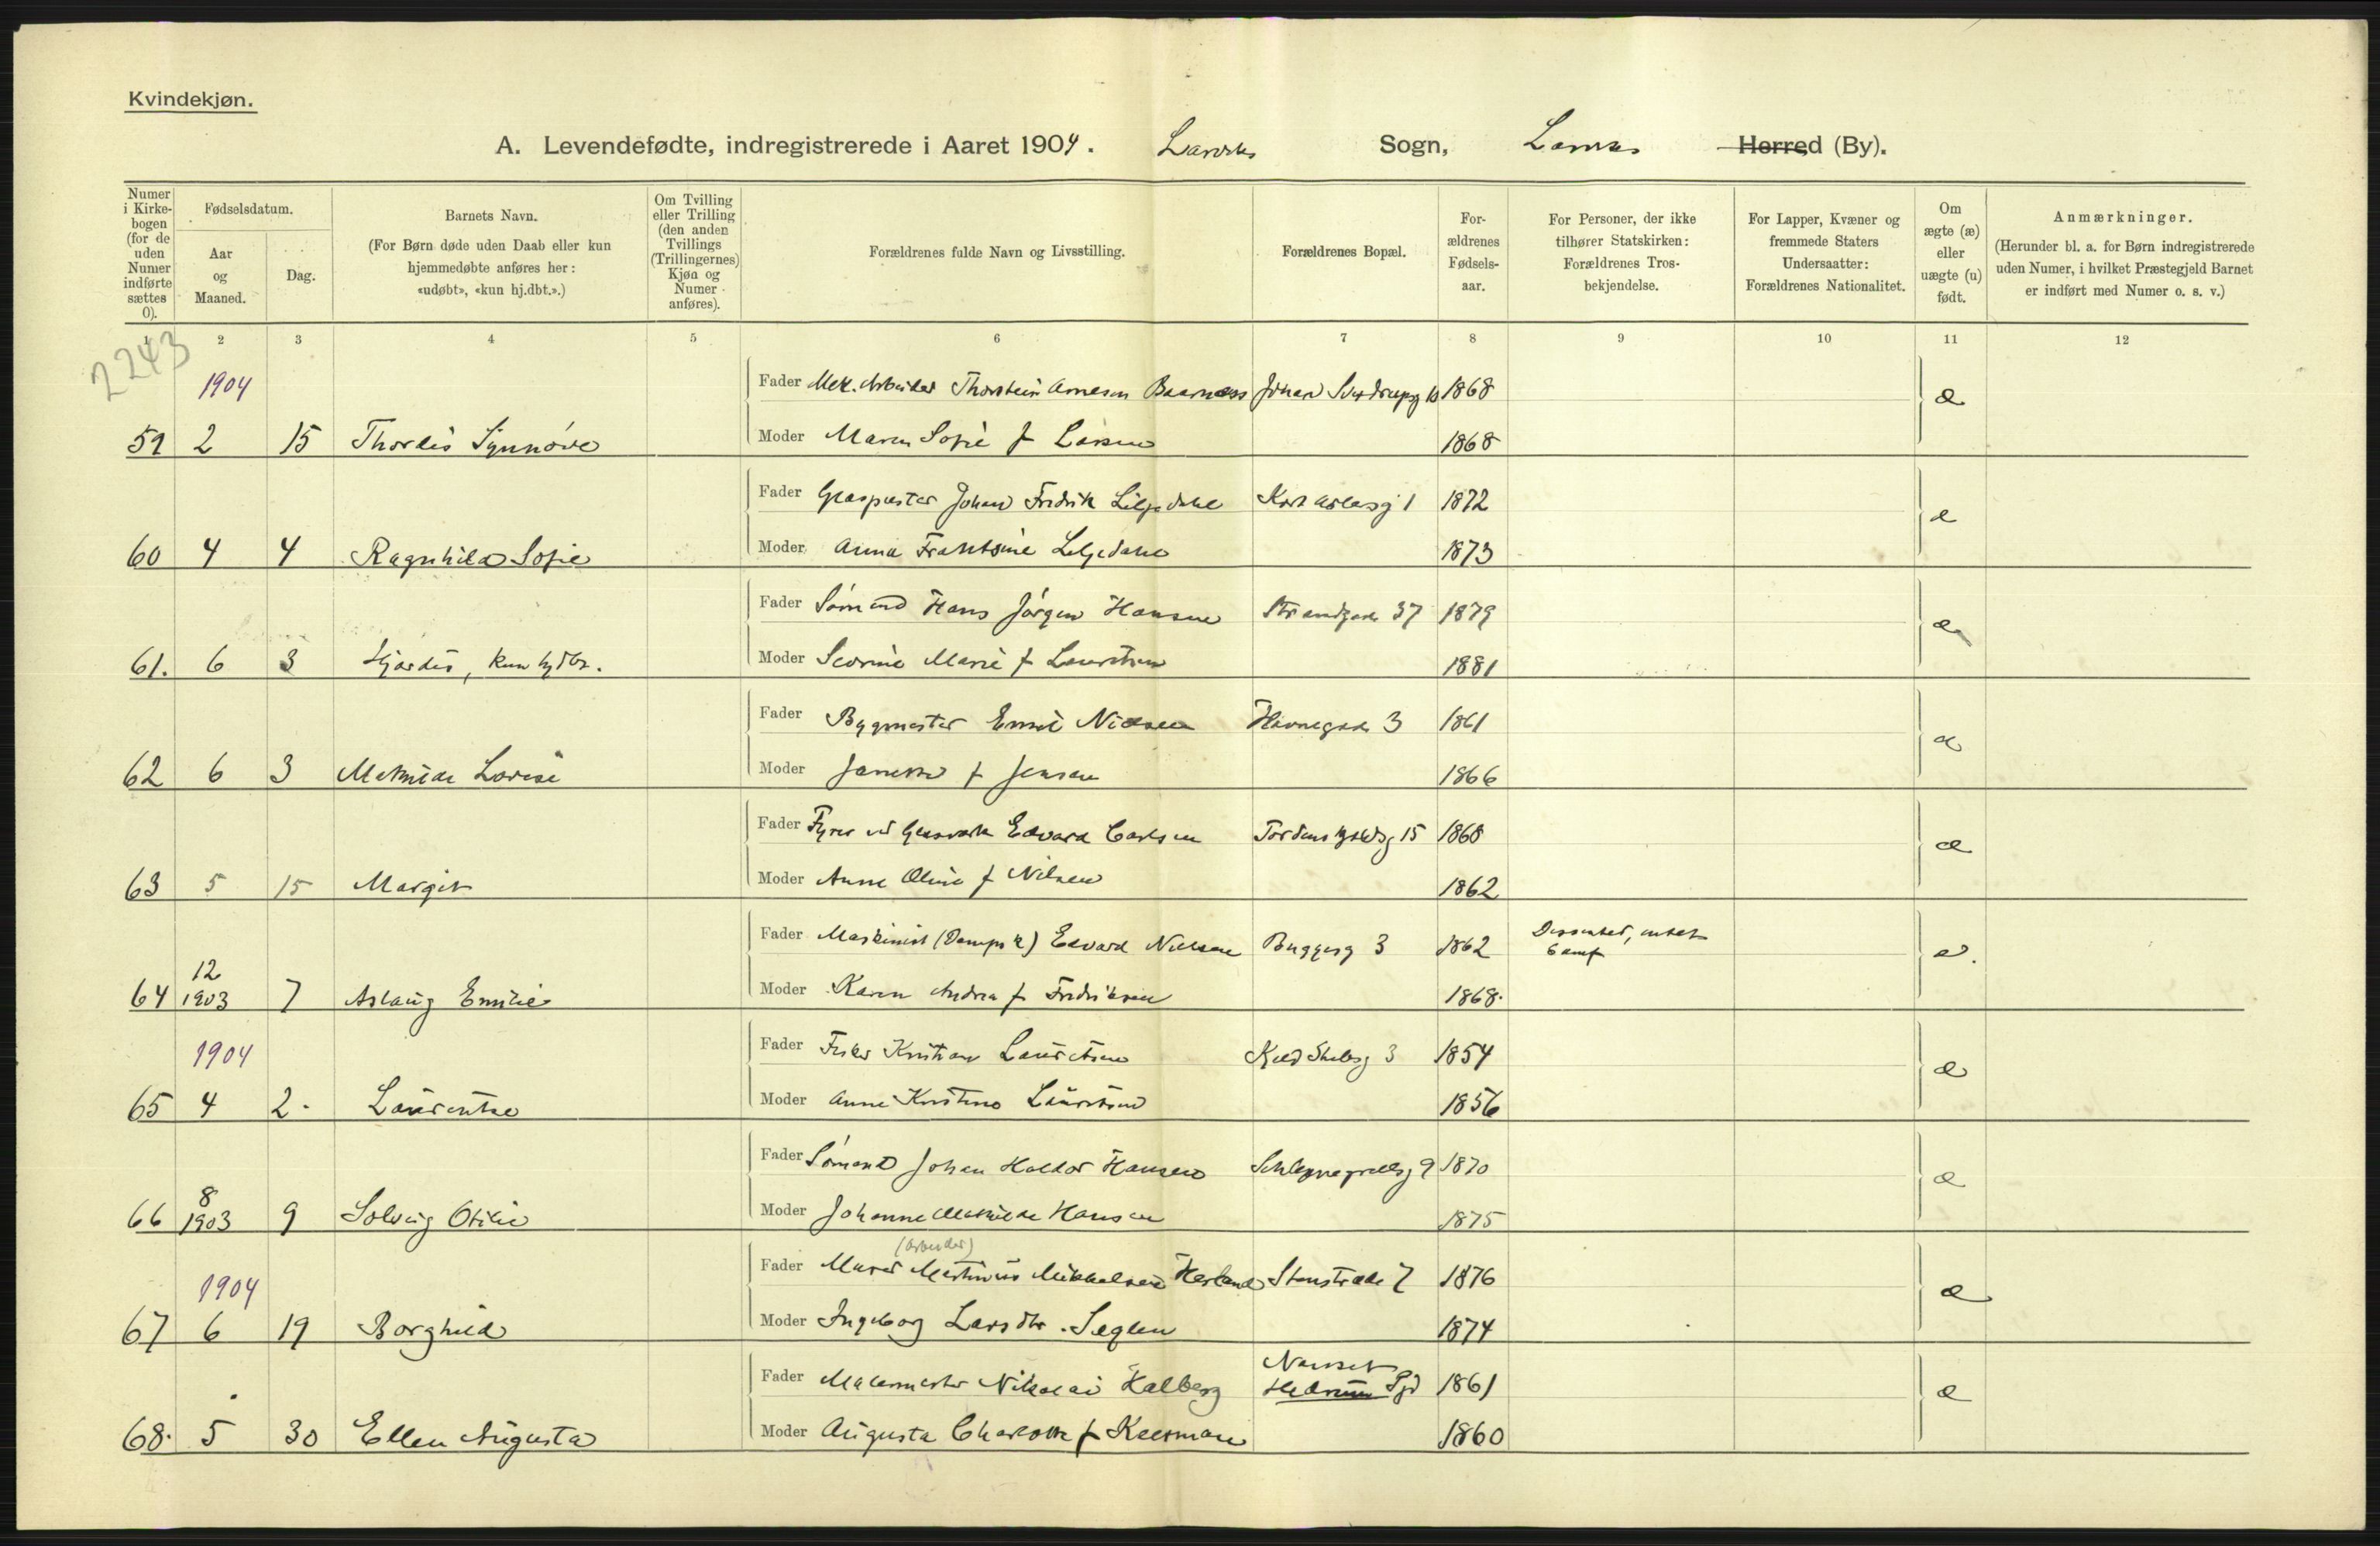 Kvindekjøn.
A. Levendefødte, indregistrerede i Aaret 1904. Larviks Sogn, Larviks Herred (By).
Numer i Kirkebogen (for de uden Numer indførte sættes 0).
Fødselsdatum.
Aar og Maaned.
Dag.
Barnets Navn.
(For Børn døde uden Daab eller kun hjemmedøbte anføres her: «udøbt», «kun hj.dbt.».)
Om Tvilling eller Trilling (den anden Tvillings (Trillingernes) Kjøn og Numer anføres).
Forældrenes fulde Navn og Livsstilling.
Forældrenes Bopæl.
Forældrenes Fødselsaar.
For Personer, der ikke tilhører Statskirken: Forældrenes Trosbekjendelse.
For Lapper, Kvæner og fremmede Staters Undersaatter: Forældrenes Nationalitet.
Om ægte (æ) eller uægte (u) født.
Anmærkninger.
(Herunder bl. a. for Børn indregistrerede uden Numer, i hvilket Præstegjeld Barnet er indført med Numer o. s. v.)
1 2 3 4 5 6 7 8 9 10 11 12
2243
1904 Fader Mek. Arbeider Thorstein Arnesen Baarnæss Johan Sverdrupsg 10 1868 æ
59 2 15 Thordis Synnöve Moder Maren Sofie f Larsen 1868
Fader Glaspuster Johan Fredrik Liljedahl 1 1872 æ
60 4 4 Ragnhild Sofie Moder Anna Frantsine Liljedahl 1873
Fader Sömand Hans Jörgen Hansen Strandgade 37 1879 æ
61. 6 3 Hjördis, kun hjdbt. Moder Severine Marie f Lauritsen 1881
Fader Bygmester Emil Nielsen Havnegade 3 1861 æ
62 6 3 Mathilde Lovise Moder Janette f Jensen 1866
Fader Fyrer ved Glasværk Edvard Carlsen Tordenskjoldsg 15 1868 æ
63 5 15 Margit Moder Anne Oline f Nilsen 1862
Fader Maskinist (Dampsk) Edvard Nielsen Buggesg 3 1862 Dissenter, intet Samf æ.
12
64 1903 7 Aslaug Emilie Moder Karen Andrea f Fredriksen 1868.
1904 Fader Fisker Kristian Lauritsen 3 1854 æ
65 4 2. Laurentse Moder Anne Kristine Lauritsen 1856
Fader Sömand Johan Haldor Hansen 9 1870 æ
8
66 1903 9 Solveig Otilie Moder Johanne Mathilde Hansen 1875
(Arbeider)
1904 Fader Murer Martinius Mikkelsen Herland Stenstræde 7 1876 æ
67 6 19 Borghild Moder Ingeborg Larsdtr. Seglen 1874
Nanset
Fader Malermester Nikolai Halberg Hedrum Pgd 1861 æ
68. 5 30 Ellen Augusta Moder Augusta Charlotte f Keerman 1860